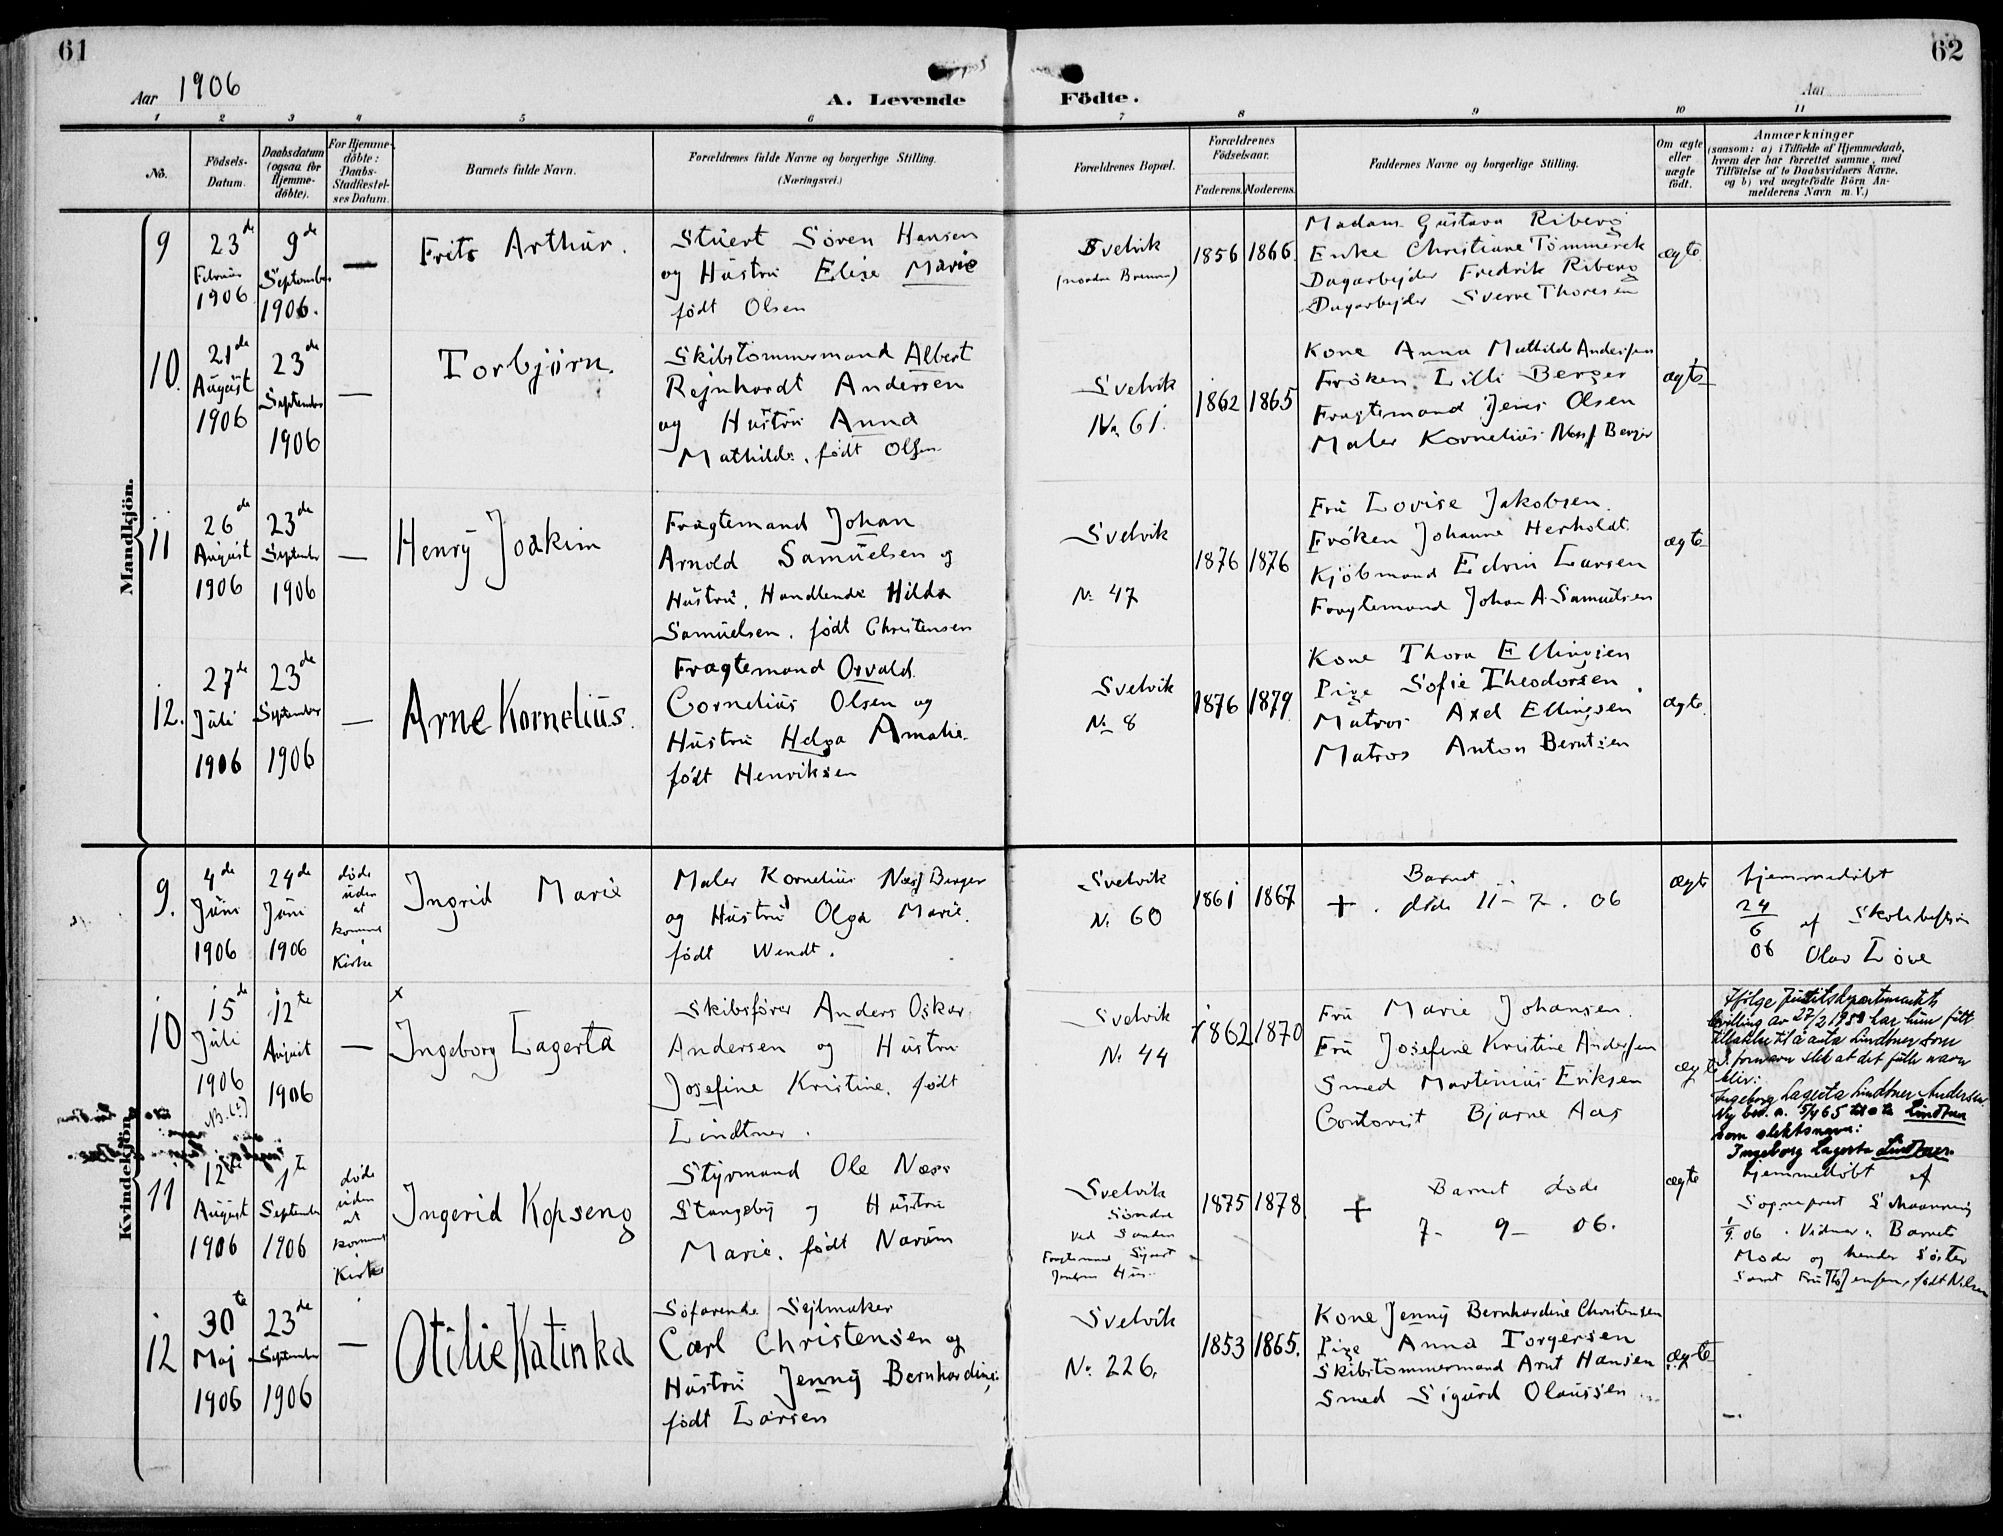 61
62
Aar 1906
A. Levende Födte.
Aar
1 2 3 4 5 6 7 8 9 10 11
No.
Födsels-Datum.
Daabsdatum (ogsaa for Hjemme-döbte).
For Hjemme-döbte: Daabs-Stadfæstel-ses Datum.
Barnets fulde Navn.
Forældrenes fulde Navne og borgerlige Stilling. (Næringsvei.)
Forældrenes Bopæl.
Forældrenes Födselsaar.
Faderens. Moderens.
Faddernes Navne og borgerlige Stilling.
Om ægte eller uægte födt.
Anmærkninger
(saasom: a) i Tilfælde af Hjemmedaab,
hvem der har forrettet samme, med
Tilföielse af to Daabsvidners Navne,
og b) ved uægtefödte Börn An-
melderens Navn m. V.)
Mandkjön.
9
23de
Februar
1906
9de
September
1906.
—
Frits Arthur.
Stuert Sören Hansen
og Hustru Elise Marie
født Olsen
Svelvik
(nordre Brenna)
1856 1866
Madam Gustava Riberg
Enke Christiane Tömmerek
Dagarbejder Fredrik Riberg
Dagarbejder Sverre Thoresen
ægte
10.
21de
August
1906
23de
September
1906
—
Torbjørn.
Skibstømmermand Albert
Rejnhardt Andersen
og Hustru Anna
Mathilde, født Olsen
Svelvik
No 61.
1862 1865
Kone Anna Mathilde Andersen
Frøken Lilli Berger
Fragtemand Jens Olsen
Maler Kornelius Næss Berger
ægte
11
26de
August
1906
23de
September
1906
—
Henry Joakim
Fragtemand Johan
Arnold Samuelsen og
Hustru, Handlende Hilda
Samuelsen, født Christensen
Svelvik
No 47
1876 1876
Fru Lovise Jakobsen
Frøken Johanne Herholdt
Kjöbmand Edvin Larsen
Fragtemand Johan A. Samuelsen
ægte
12.
27de
Juli
1906
23de
September
1906
—
Arne Kornelius.
Fragtemand Osvald
Cornelius Olsen og
Hustru Helga Amalie
født Henriksen
Svelvik
No 8
1876 1879
Kone Thora Ellingsen
Pige Sofie Theodorsen
Matros Axel Ellingsen
Matros Anton Berntsen
ægte
Kvindekjön
9.
4de
Juni
1906
24de
Juni
1906
døde
uden
at
komme
i
Kirke
Ingrid Marie
Maler Kornelius Næss Berger
og Hustru Olga Marie
født Wendt.
Svelvik
No 60
1861 1867
Barnet
+ . døde 11-7. 06
ægte
hjemmedøbt
24/6 06 af
Olav Løve
10
15de
Juli
1906
12te
August
1906
—
x
Ingeborg Lagerta
Skibsfører Anders Oskar
Andersen og Hustru
Josefine Kristine, født
Lindtner.
Svelvik
No 44
1862 1870
Fru Marie Johansen
Fru Josefine Kristine Andersen
Smed Martinius Eriksen
Contorist Bjarne Aas
ægte
Ifølge Justitsdepartementets
bevilling av 27/2 19 har hun fått
tillatelse til å anta Lindtner som
fornavn slik at det fulle navn
blir:
Ingeborg Lagerta Lindtner Andersen.
Ny bev. a. 5/4 65 til å ta Lindtner
som slektsnavn:
Ingeborg Lagerta Lindtner.
N.B. (!)
11
12te
August
1906
1te
September
1906
døde
uden
at
komme
i
Kirke
Ingerid Kopseng
Styrmand Ole Næss
Stangeby og Hustru
Marie, født Narum
Svelvik
Søndre
ved Sanden
Fragtemand
Hus
1875 1878
+
Barnet døde
7-9-06.
ægte
hjemmedøbt af
Sogneprest
1/9 06. Vidner: Barnets
Moder og hendes Søster
samt Fru Jensen, født Nilsen
12
30te
Maj
1906
23de
September
1906
—
Otilie Katinka
Søfarende Sejlmaker
Carl Christensen og
Hustru Jenny Bernhardine
født Larsen
Svelvik
No 226.
1853 1865.
Kone Jenny Bernhardine Christensen
Pige Anna Torgersen
Skibstømmermand Arnt Hansen
Smed Sigurd Olaussen
ægte